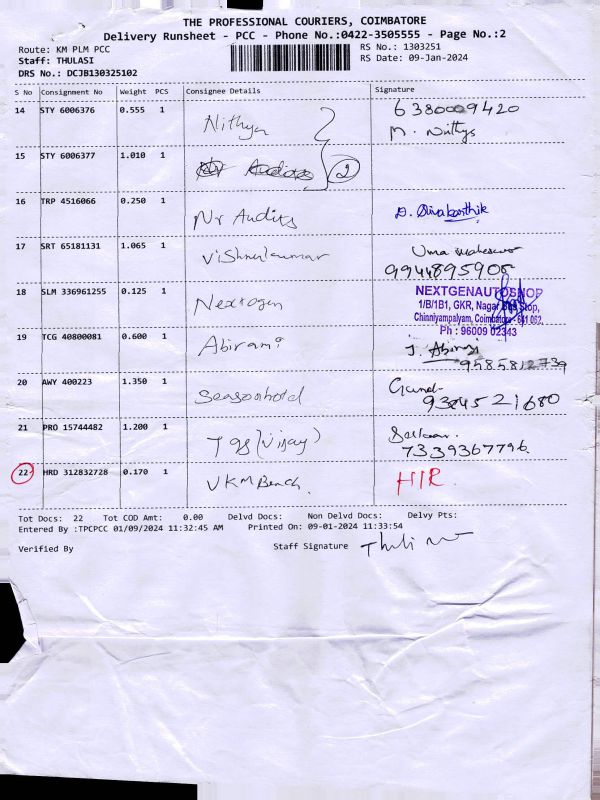 THE PROFESSIONAL COURIERS, COIMBATORE
Delivery Runsheet - PCC - Phone No.:0422-3505555 - Page No.:2
Route: KM PLM PCC
RS No.: 1303251
Staff: THULASI
RS Date: 09-Jan-2024
DRS No.: DCJB130325102
S No Consignment No Weight PCS Consignee Details Signature
14 STY 6006376 0.555 1 Nithya 6380009420
M. Nithya
15 STY 6006377 1.010 1 2
16 TRP 4516066 0.250 1 Nr Audits D. Sivakarthik
17 SRT 65181131 1.065 1 Vishnukumar Uma
9944895908
18 SLM 336961255 0.125 1 Nextogen NEXTGENAUTOSHOP
1/B/1B1, GKR, Nagar Bus Stop,
Chinniyampalyam, Coimbatore - 641 062.
Ph : 96009 02343
19 TCG 40800081 0.600 1 Abirami J. Abirami
9585812739
20 AWY 400223 1.350 1 Seasonhotd
9384521680
21 PRO 15744482 1.200 1 Tgs (Vijay)
7339367796
22 HRD 312832728 0.170 1 VKM Bench. HIR
Tot Docs: 22 Tot COD Amt: 0.00 Delvd Docs: Non Delvd Docs: Delvy Pts:
Entered By :TPCPCC 01/09/2024 11:32:45 AM Printed On: 09-01-2024 11:33:54
Verified By Staff Signature